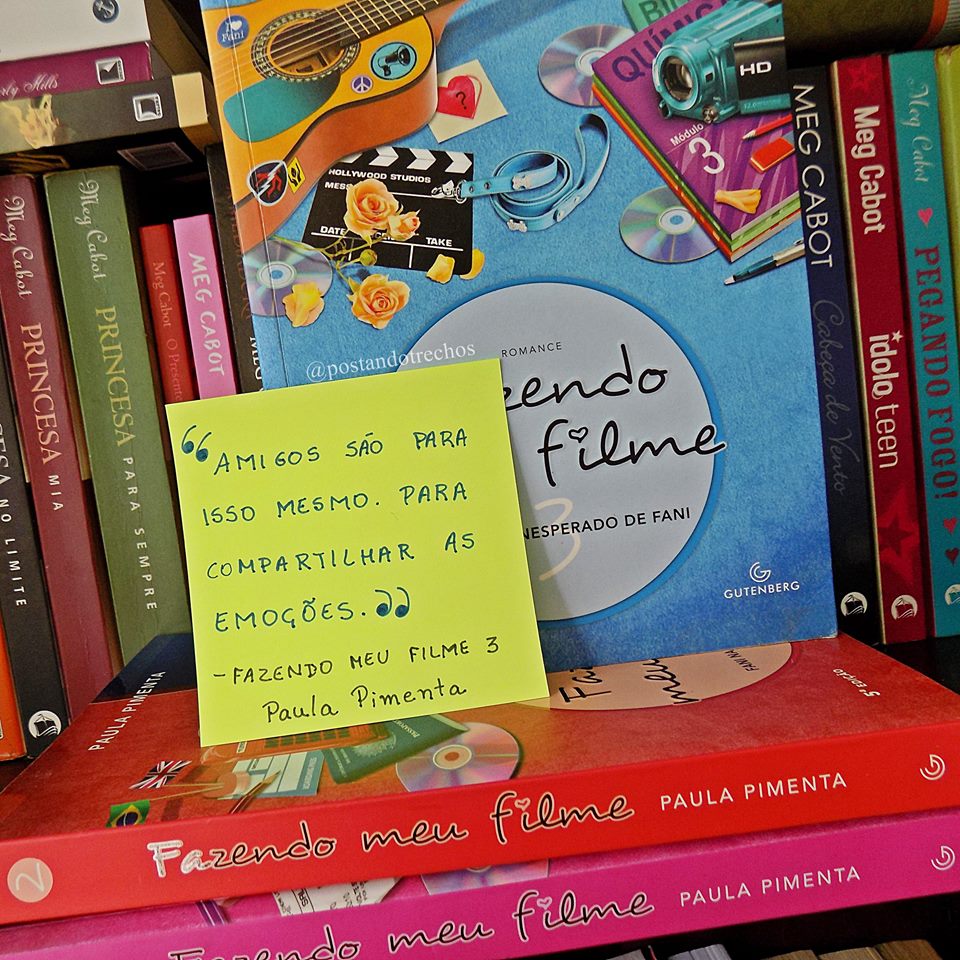 erly Hills
Meg Cabot PRINCESA MIA
Meg Cabot PRINCESA PARA SEMPRE
ESA NO LIMITE
Meg Cabot O Presente
MEG CABOT
I ♥ Fani
?
HOLLYWOOD STUDIOS
MESS
DATE
TAKE
QUÍMICA
Módulo
3
HD
@postandotrechos
ROMANCE
zendo
filme
3
NESPERADO DE FANI
GUTENBERG
MEG CABOT Cabeça de Vento
Meg Cabot ídolo teen
Meg Cabot PEGANDO FOGO!
“AMIGOS SÃO PARA
ISSO MESMO. PARA
COMPARTILHAR AS
EMOÇÕES.”
- FAZENDO MEU FILME 3
Paula Pimenta
PAULA PIMENTA
Fa
meu
FANI NA
5ª EDIÇÃO
2 Fazendo meu filme PAULA PIMENTA
Fazendo meu filme PAULA PIMENTA